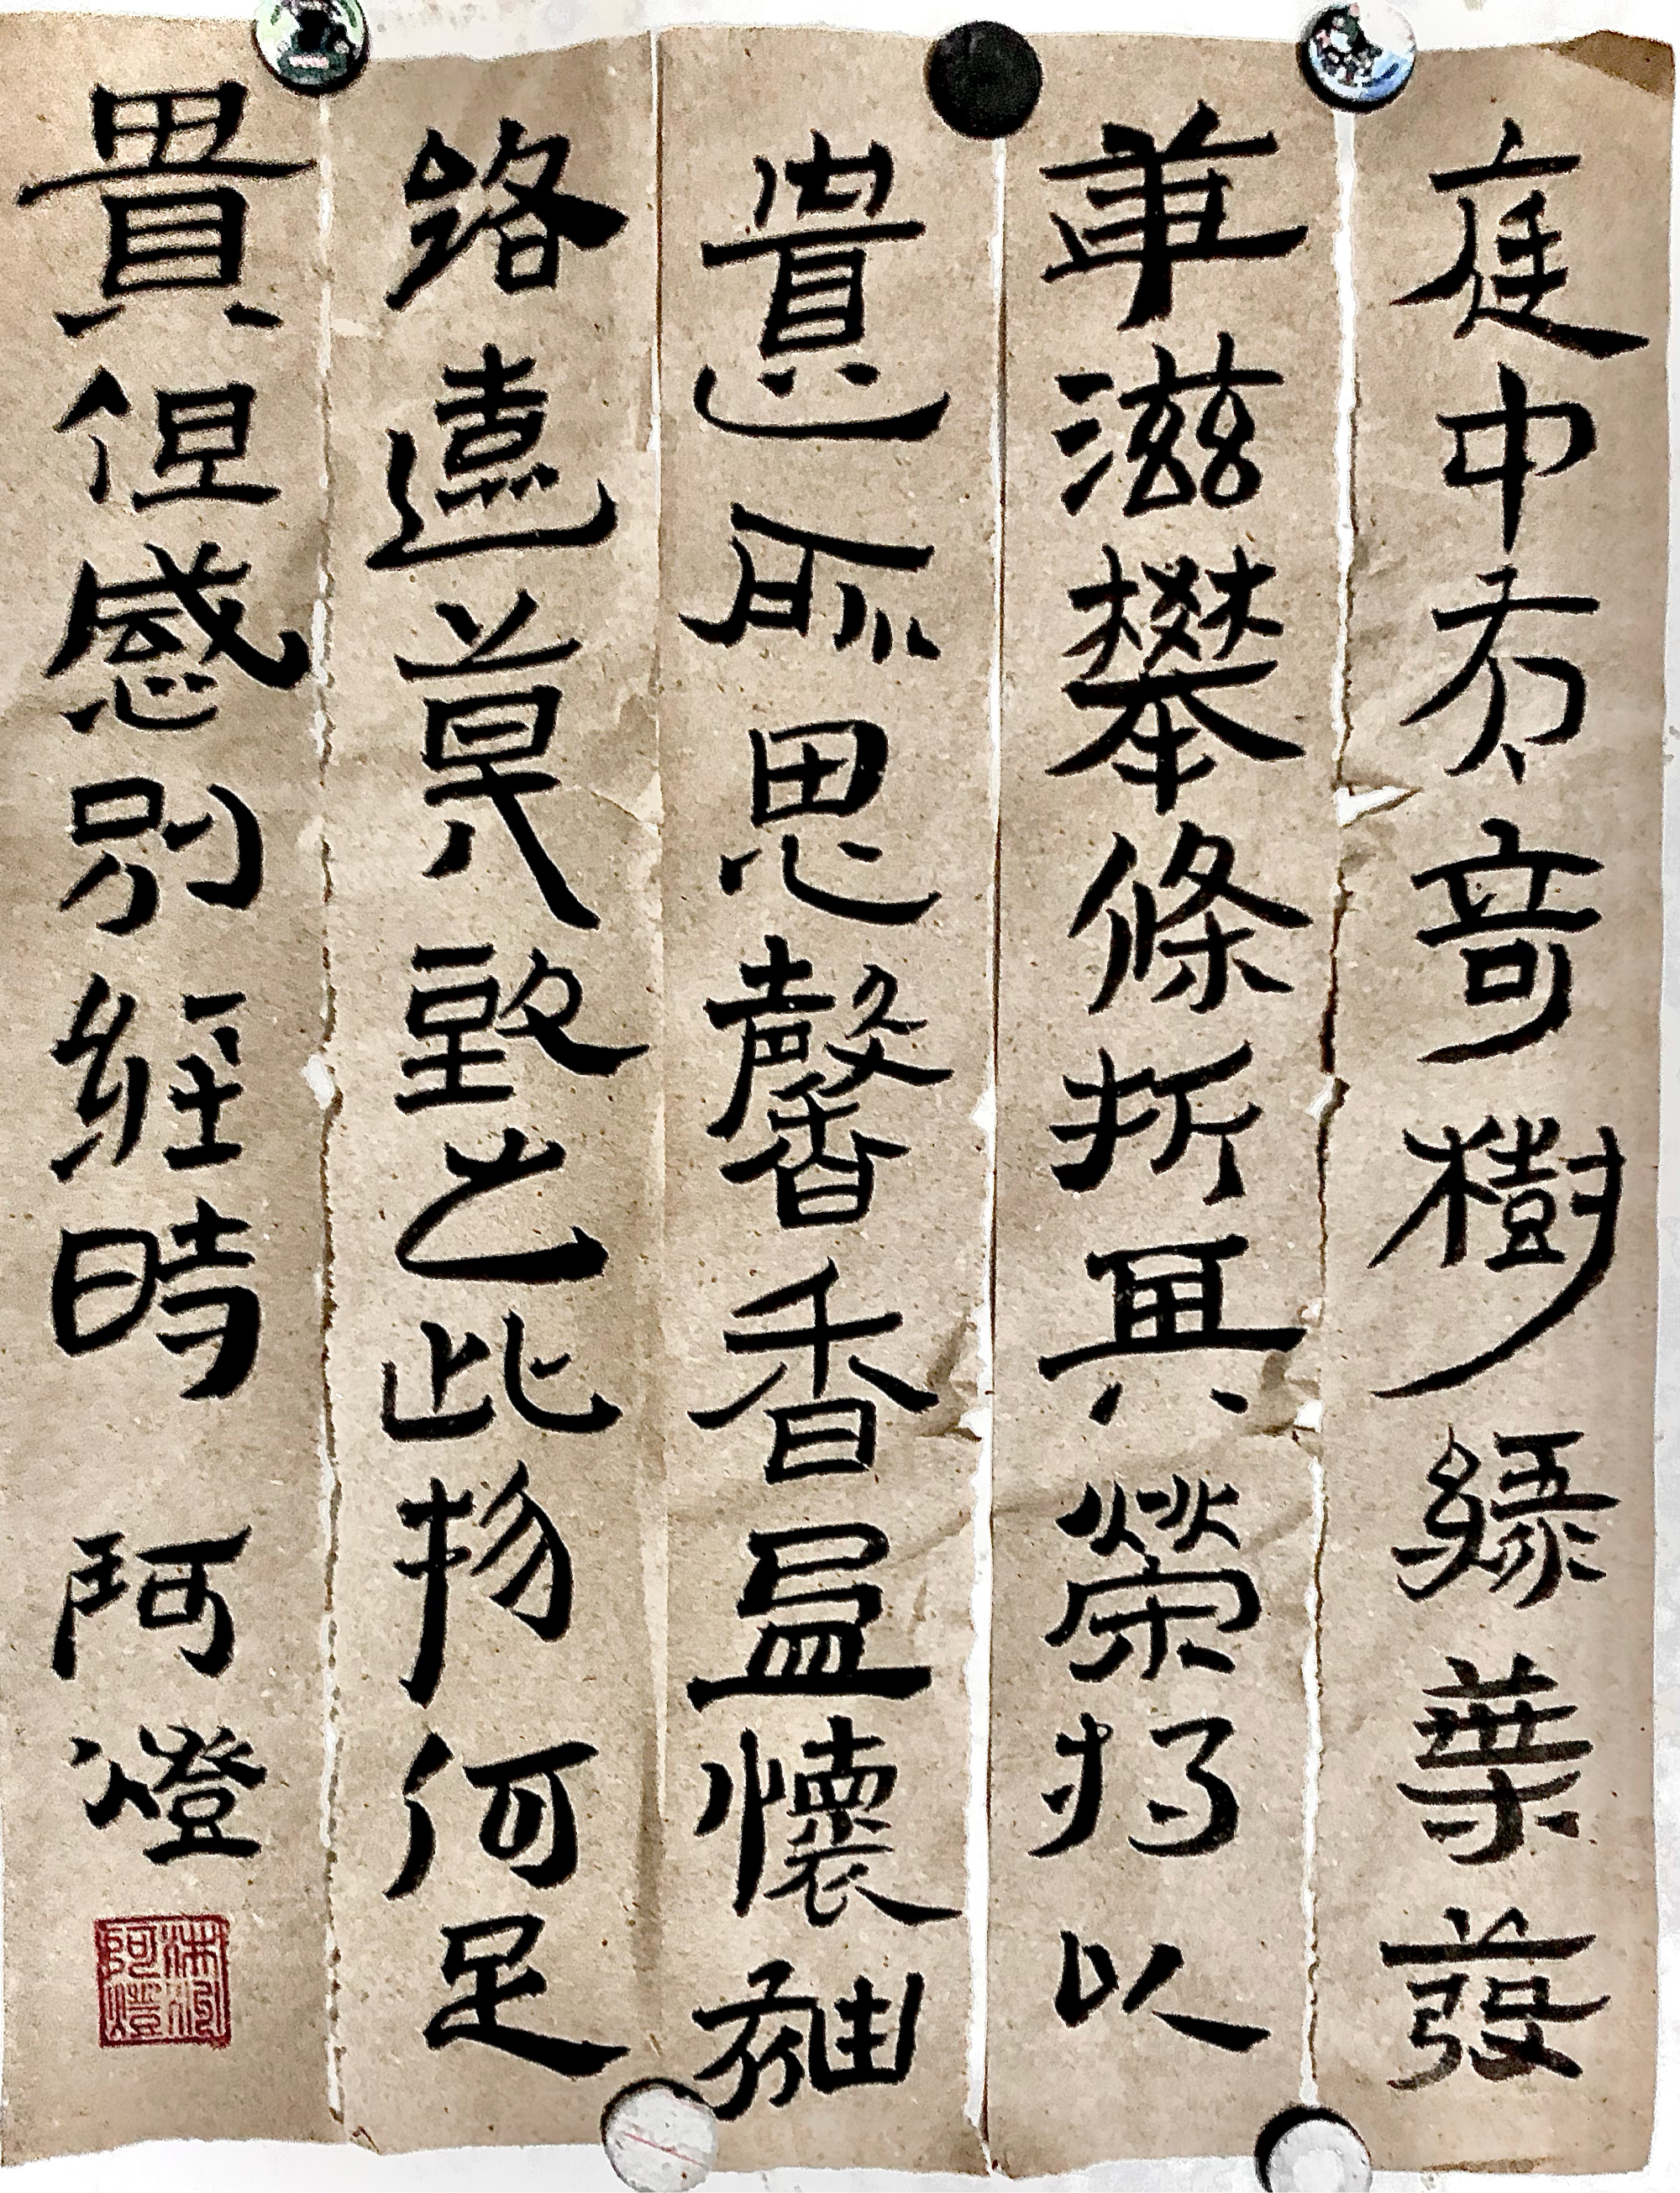 庭中有奇樹綠葉發
華滋攀條折其榮將以
遺所思馨香盈懷袖
路遠莫致之此物何足
貴但感別經時 阿燈